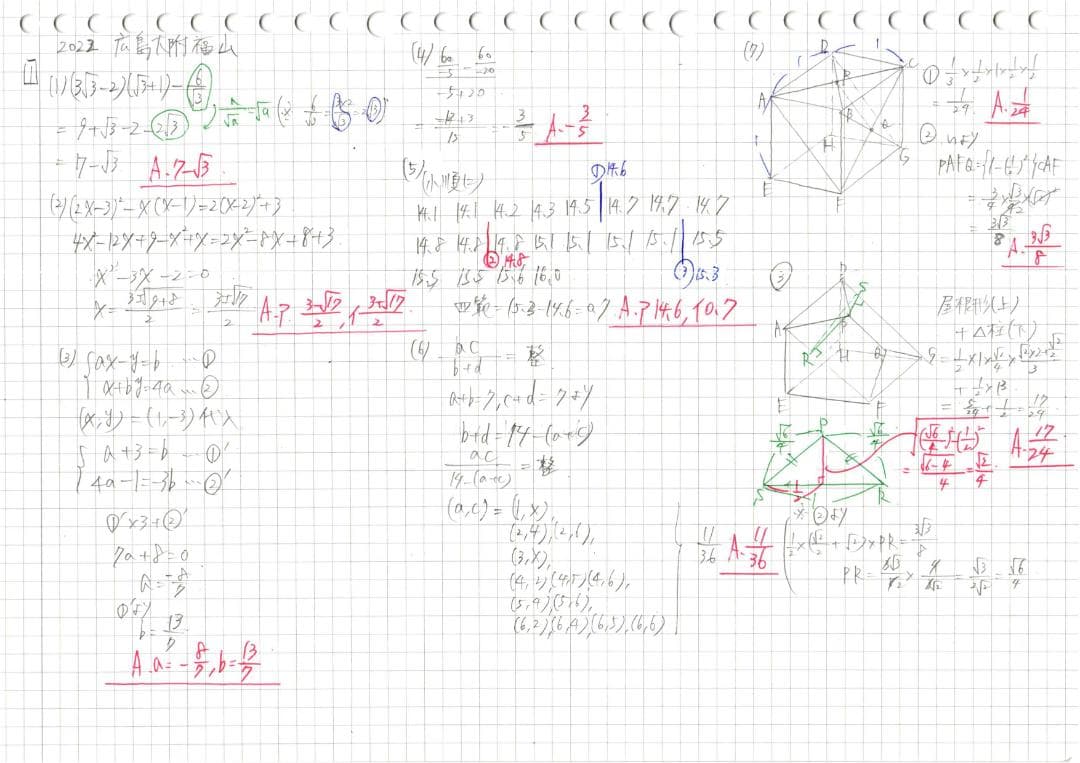 2022 広島大附福山
1
(1)(3√3-2)(√3+1)-6/√3
= 9+√3-2-2√3
= 7-√3
A. 7-√3
(2)(2x-3)²-x(x-1)=2(x-2)²+3
4x²-12x+9-x²+x=2x²-8x+8+3
x²-3x-2=0
x=(3±√9+8)/2=(3±√17)/2
A. ア. (3-√17)/2, イ (3+√17)/2
(3){ax-y=b …①
x+by=4a …②
(x,y)=(1,-3)代入
{a+3=b …①'
4a-1=-3b …②'
①'×3+②'
7a+8=0
a=-8/7
①'より
b=13/7
A. a=-8/7, b=13/7
(4) (60/-5 - 60/-20)/(-5+20)
=(-12+3)/15=-3/5
A. -3/5
(5)(小順に)
①14.6
14.1 14.1 14.2 14.3 14.5 14.7 14.7 14.7
14.8 14.8 14.8 15.1 15.1 15.1 15.1 15.5
②14.8
③15.3
15.5 15.5 15.6 16.0
四範=15.3-14.6=0.7
A. ア14.6, イ0.7
(6) ac/(b+d) = 整
a+b=7, c+d=7より
b+d=14-(a+c)
ac/(14-(a+c))=整
(a,c)=(1,×)
(2,4),(2,6),
(3,×)
(4,2)(4,5)(4,6),
(5,4)(5,6),
(6,2)(6,4)(6,5),(6,6)
11/36
A. 11/36
(7)
①1/3×1/2×1×1/2×1/2
=1/24
A. 1/24
②①より
PAFQ={1-(1/2)²}CAF
=3/4×√3/4×(√2)²
=3√3/8
A. 3√3/8
③
屋根形(上)
+△柱(下)
=1/2×1×√2/4×(√2×2+√2/2)/3
+1/2×1³
=5/24+1/2=17/24
A. 17/24
√((√6/4)²-(1/2)²)
=√(6-4)/4=√2/4
※②より
1/2×(√2/2+√2)×PR=3√3/8
PR=3√3/8×4/3√2=√3/2√2=√6/4